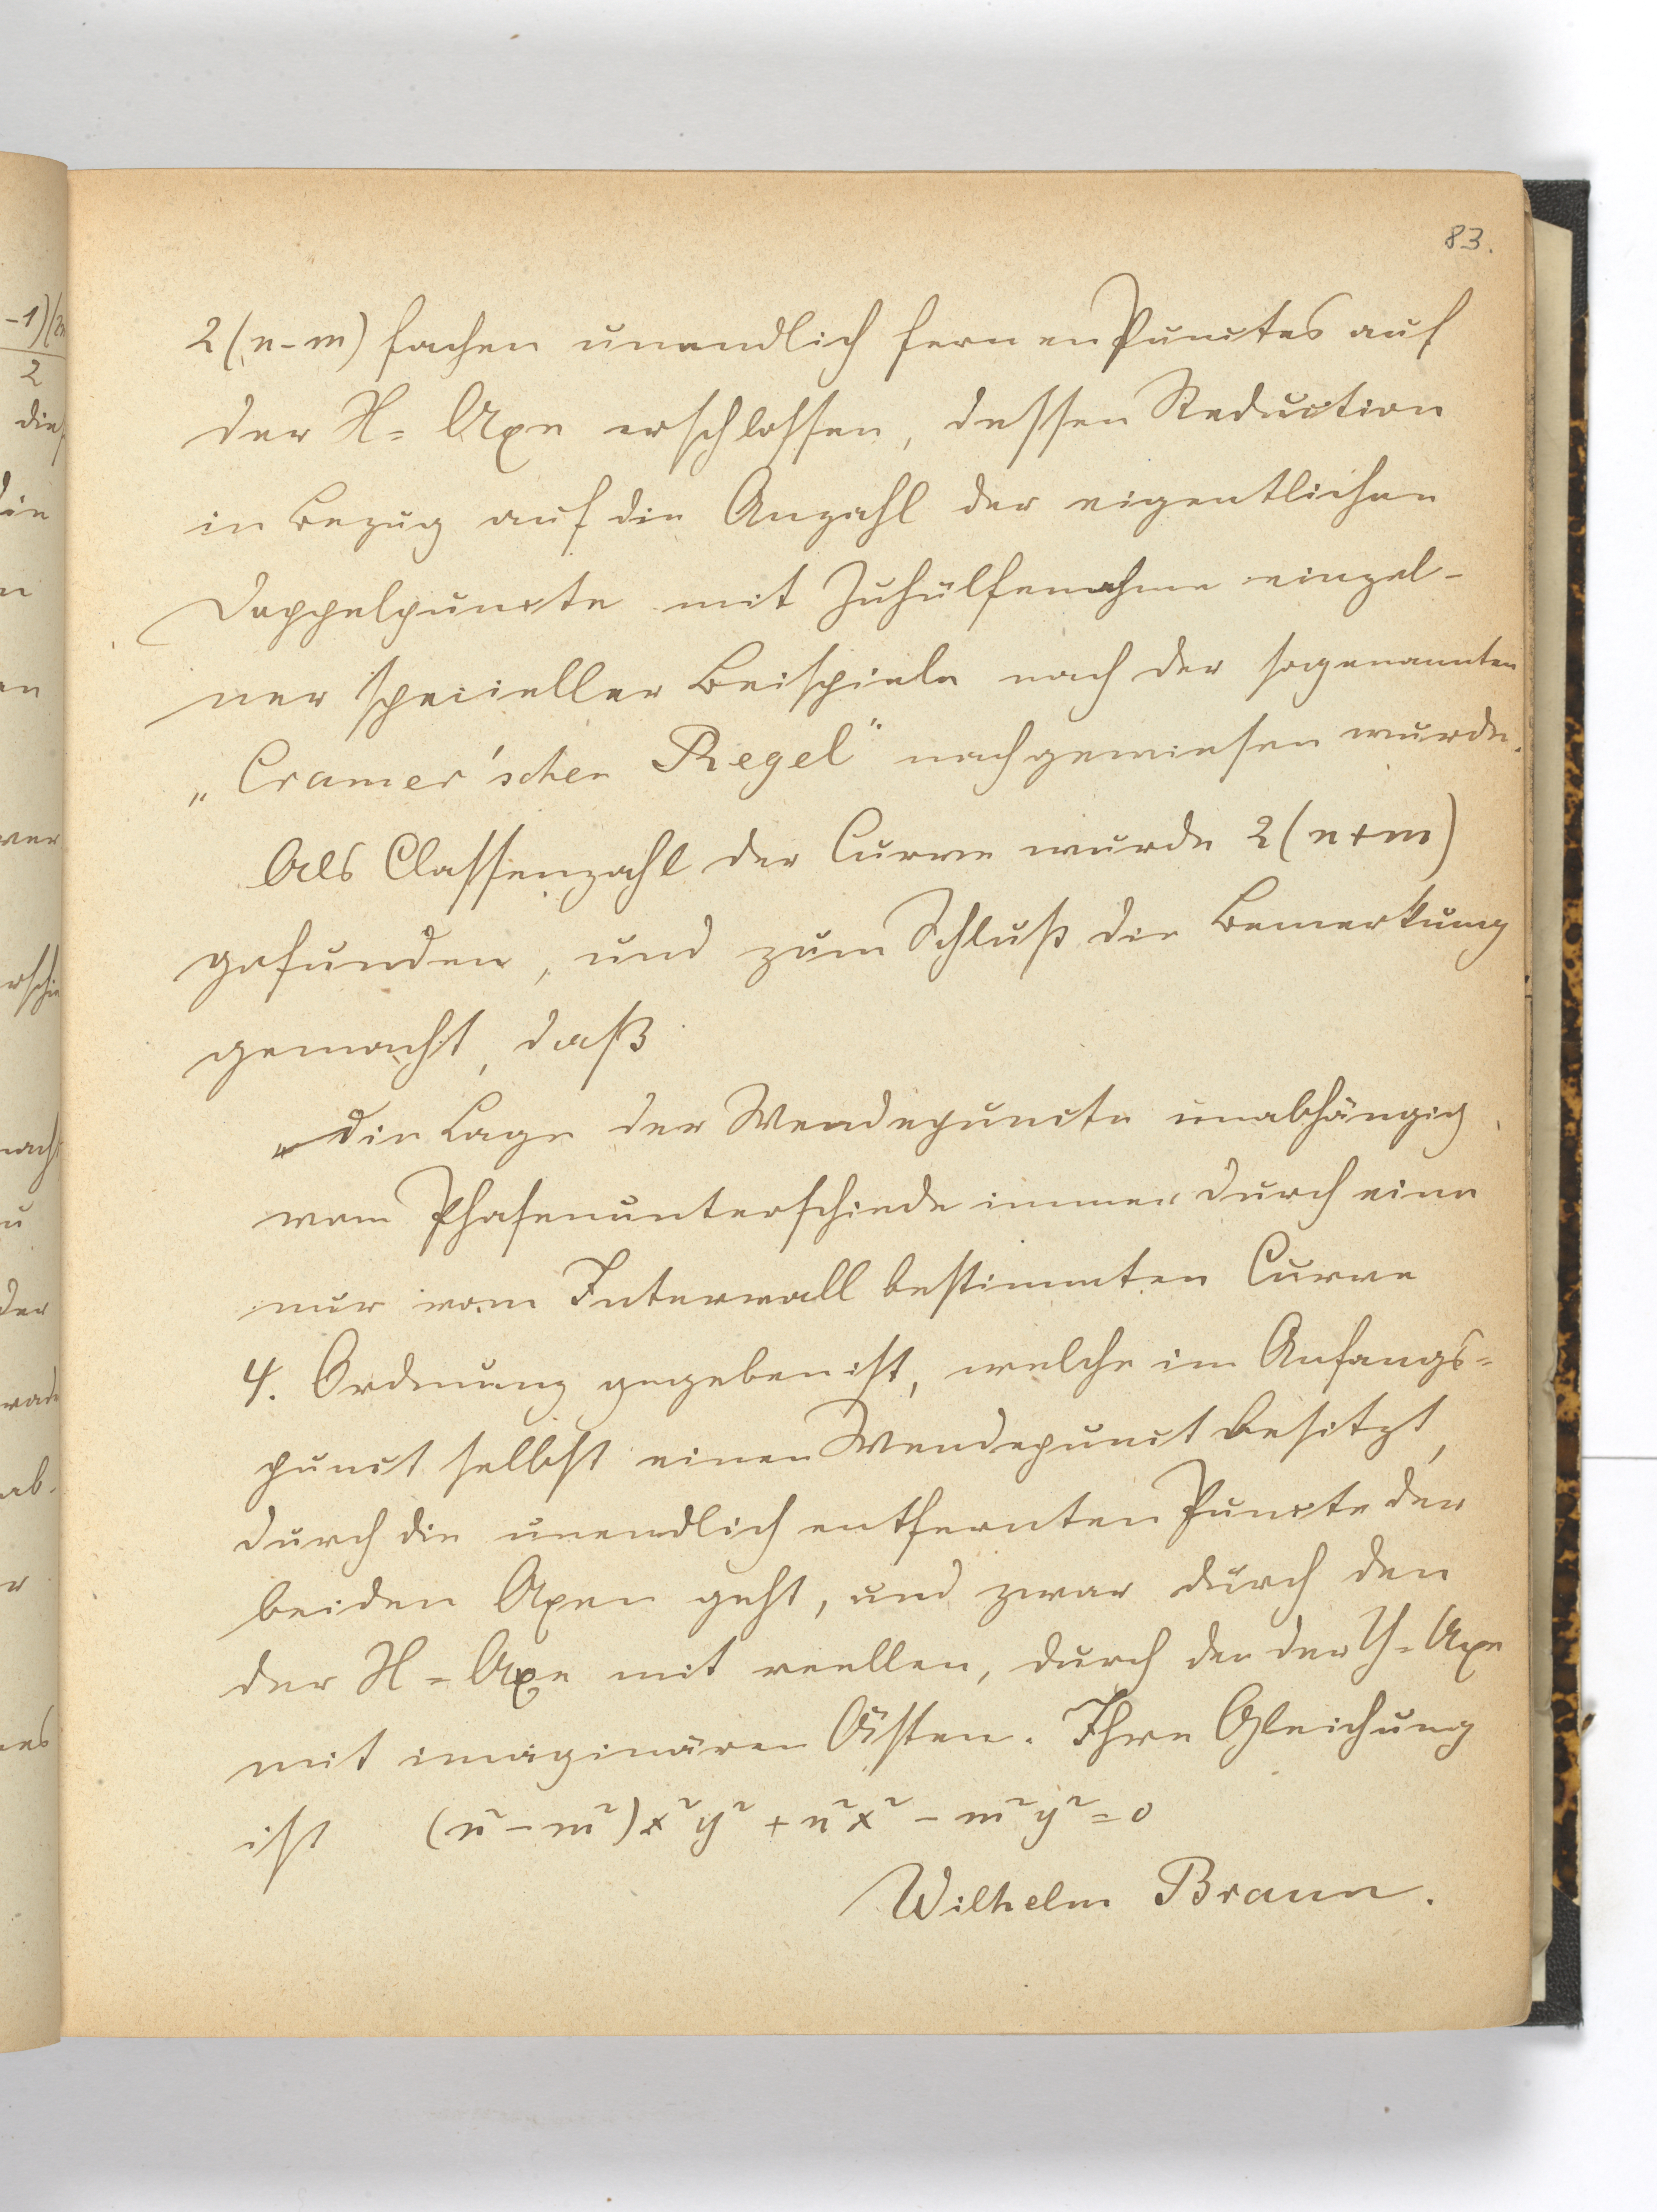 83.
2(n-m) fachen unendlich fernen Punctes auf
der X=Axe erschlossen, dessen Reduction
in Bezug auf die Anzahl der eigentlichen
Doppelpuncte mit Zuhülfenahme einzel-
ner specieller Beispiele nach der sogenannten
„Cramer'schen Regel" nachgewiesen wurde.
Als Classenzahl der Curve wurde 2(n+m)
gefunden, und zum Schluß die Bemerkung
gemacht, daß
„die Lage der Wendepuncte unabhängig
vom Phasenunterschiede immer durch eine
nur vom Intervall bestimmten Curve
4. Ordnung gegeben ist, welche im Anfangs=
punct selbst einen Wendepunct besitzt,
durch die unendlich entfernten Puncte der
beiden Axen geht, und zwar durch den
der X=Axe mit reellen, durch den der Y=Axe
mit imaginären Ästen. Ihre Gleichung
ist (n²-m²)x²y² + n²x² - m²y² = 0
Wilhelm Braun.